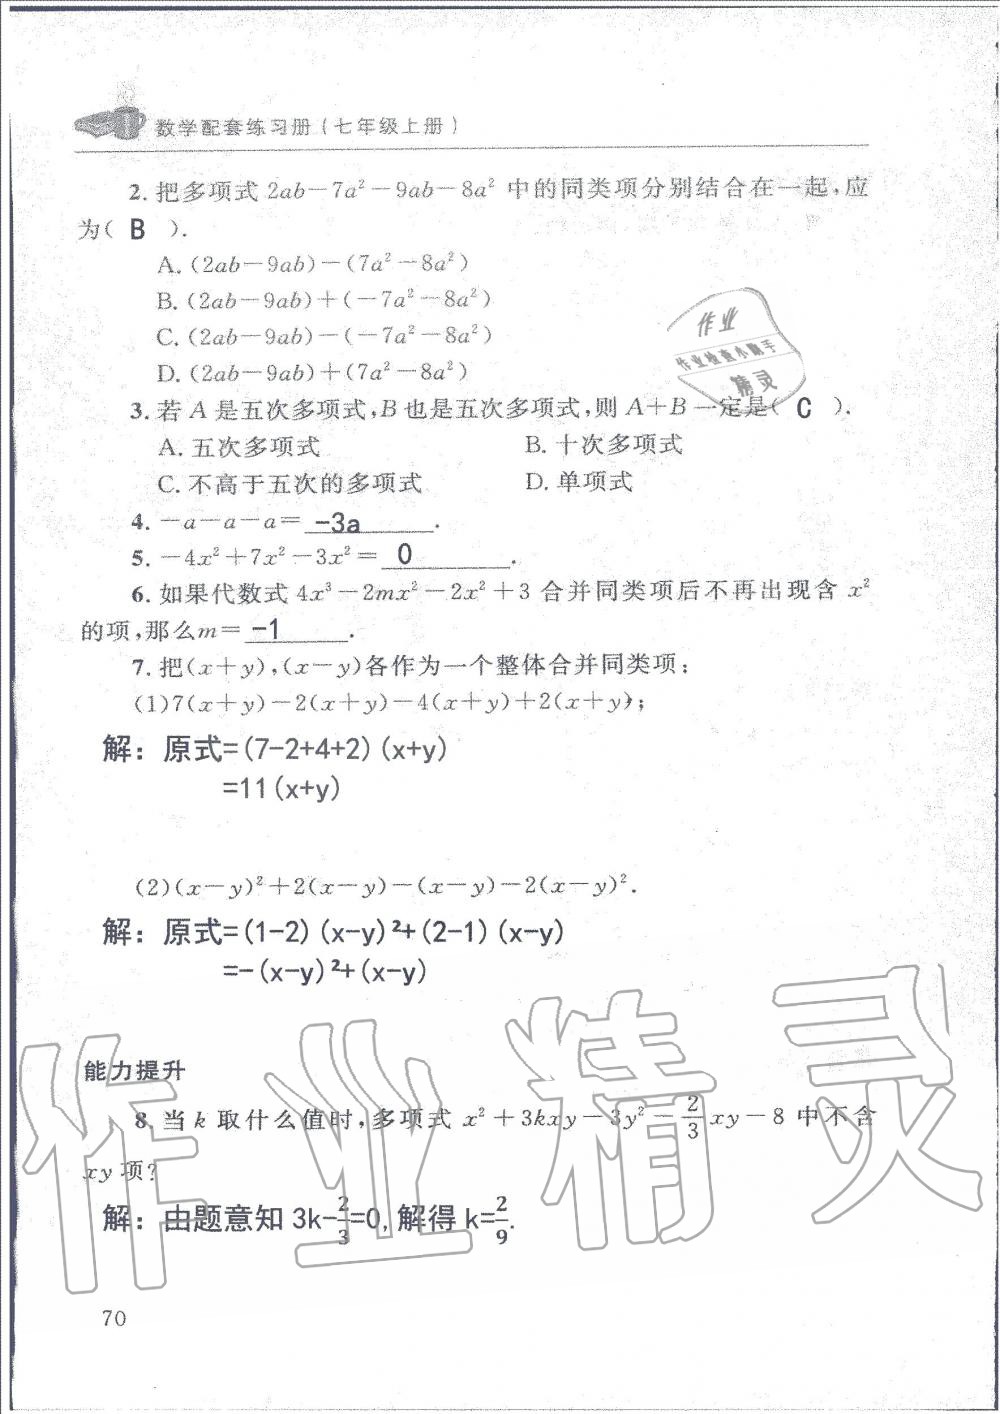 数学配套练习册(七年级上册)
2.把多项式 2ab－7a²－9ab－8a² 中的同类项分别结合在一起,应
为( B ).
A.(2ab－9ab)－(7a²－8a²)
B.(2ab－9ab)＋(－7a²－8a²)
C.(2ab－9ab)－(－7a²－8a²)
D.(2ab－9ab)＋(7a²－8a²)
作业
作业检查小助手
精灵
3.若 A 是五次多项式,B 也是五次多项式,则 A＋B 一定是( C ).
A.五次多项式 B.十次多项式
C.不高于五次的多项式 D.单项式
4.－a－a－a＝ -3a .
5.－4x²＋7x²－3x²＝ 0 .
6.如果代数式 4x³－2mx²－2x²＋3 合并同类项后不再出现含 x²
的项,那么m＝ -1 .
7.把(x＋y),(x－y)各作为一个整体合并同类项:
(1)7(x＋y)－2(x＋y)－4(x＋y)＋2(x＋y);
解：原式=(7-2+4+2)(x+y)
=11(x+y)
(2)(x－y)²＋2(x－y)－(x－y)－2(x－y)².
解：原式=(1-2)(x-y)²+(2-1)(x-y)
=-(x-y)²+(x-y)
能力提升
8.当 k 取什么值时,多项式 x²＋3kxy－3y²－2/3xy－8 中不含
xy 项?
解：由题意知 3k-2/3=0,解得 k=2/9.
70
作业精灵